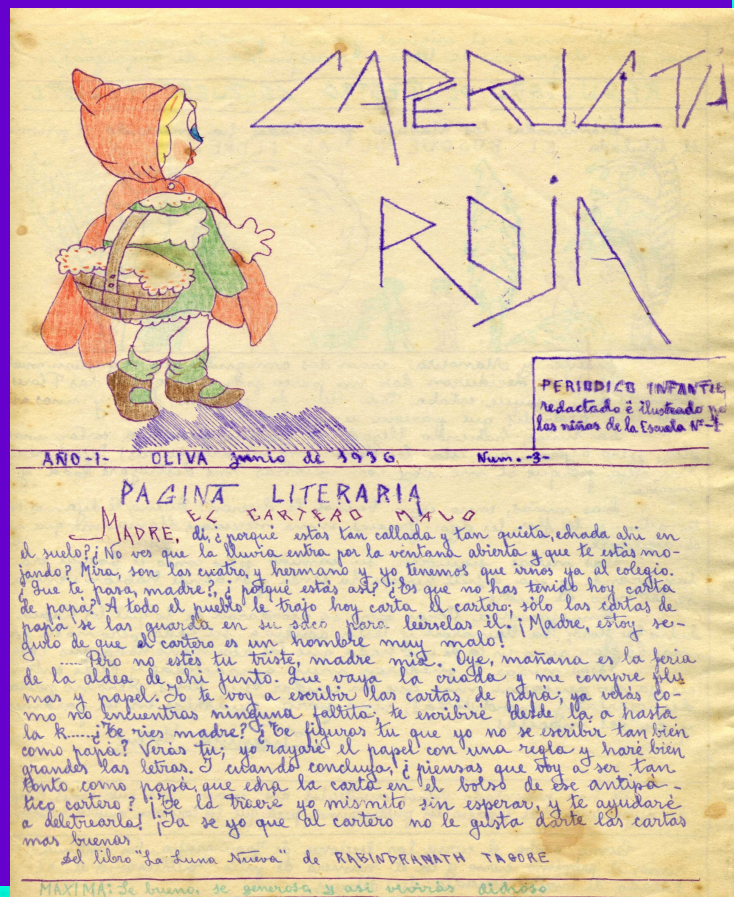 CAPERUCITA
ROJA
PERIODICO INFANTIL
redactado é ilustrado po
las niñas de la Escuela Nº-1
AÑO-1- OLIVA junio de 1936 Num.-3-
PAGINA LITERARIA
EL CARTERO MALO
MADRE, di, ¿porqué estás tan callada y tan quieta, echada ahi en
el suelo? ¿No ves que la lluvia entra por la ventana abierta y que te estás mo-
jando? Mira, son las cuatro, y hermano y yo tenemos que irnos ya al colegio.
¿Que te pasa, madre?, ¿porqué estás así? ¿Es que no has tenido hoy carta
de papá? A todo el pueblo le trajo hoy carta el cartero; sólo las cartas de
papá se las guarda en su saco para leerselas él. ¡Madre, estoy se-
guro de que el cartero es un hombre muy malo!
..... Pero no estés tu triste, madre mia. Oye, mañana es la feria
de la aldea de ahi junto. Que vaya la criada y me compre plu
mas y papel. Yo te voy a escribir las cartas de papá; ya verás co-
mo no encuentras ninguna faltita; te escribiré desde la a hasta
la k.....¿Te ries madre? ¿Te figuras tu que yo no se escribir tan bién
como papá? Verás tu; yo rayaré el papel con una regla y haré bien
grandes las letras. Y cuando concluya, ¿piensas que voy a ser tan
tonto como papá, que echa la carta en el bolso de ese antipa-
tico cartero? ¡Te la traeré yo mismito sin esperar, y te ayudaré
a deletrearla! ¡Ya se yo que al cartero no le gusta darte las cartas
mas buenas
Del libro "La Luna Nueva" de RABINDRANATH TAGORE
MAXIMA: Se bueno, se generoso y asi vivirás dichoso